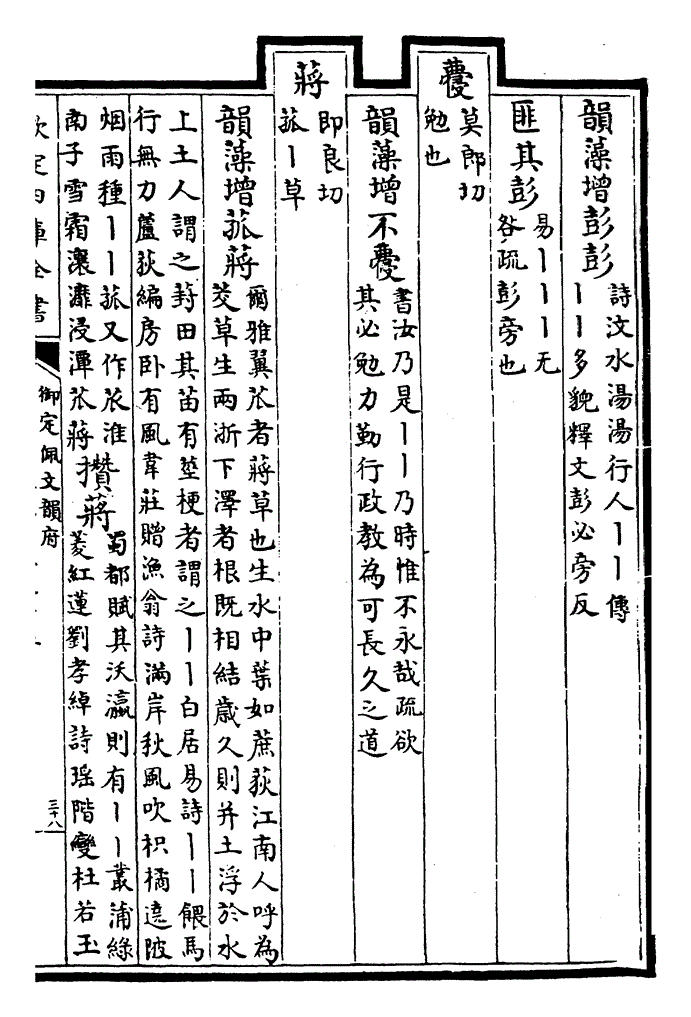 韻藻增彭彭
詩汶水湯湯行人丨丨傳
丨丨多貌釋文彭必旁反
匪其彭
易丨丨丨无
咎疏彭旁也
㝱
莫郎切
勉也
韻藻增不㝱
書汝乃是丨丨乃時惟不永哉疏欲
其必勉力勤行政教為可長久之道
蔣
即良切
菰丨草
韻藻增菰蔣
爾雅翼苽者蔣草也生水中葉如蔗荻江南人呼為
茭草生兩浙下澤者根既相結歲久則并土浮於水
上土人謂之葑田其苗有莖梗者謂之丨丨白居易詩丨丨餵馬
行無力蘆荻編房卧有風韋莊贈漁翁詩滿岸秋風吹枳橘遶陂
烟雨種丨丨菰又作苽淮
南子雪霜瀼灖浸潭苽蔣
攢蔣
蜀都賦其沃瀛則有丨丨叢蒲綠
菱紅蓮劉孝綽詩瑶階變杜若玉
欽定四庫全書
御定佩文韻府
三十八